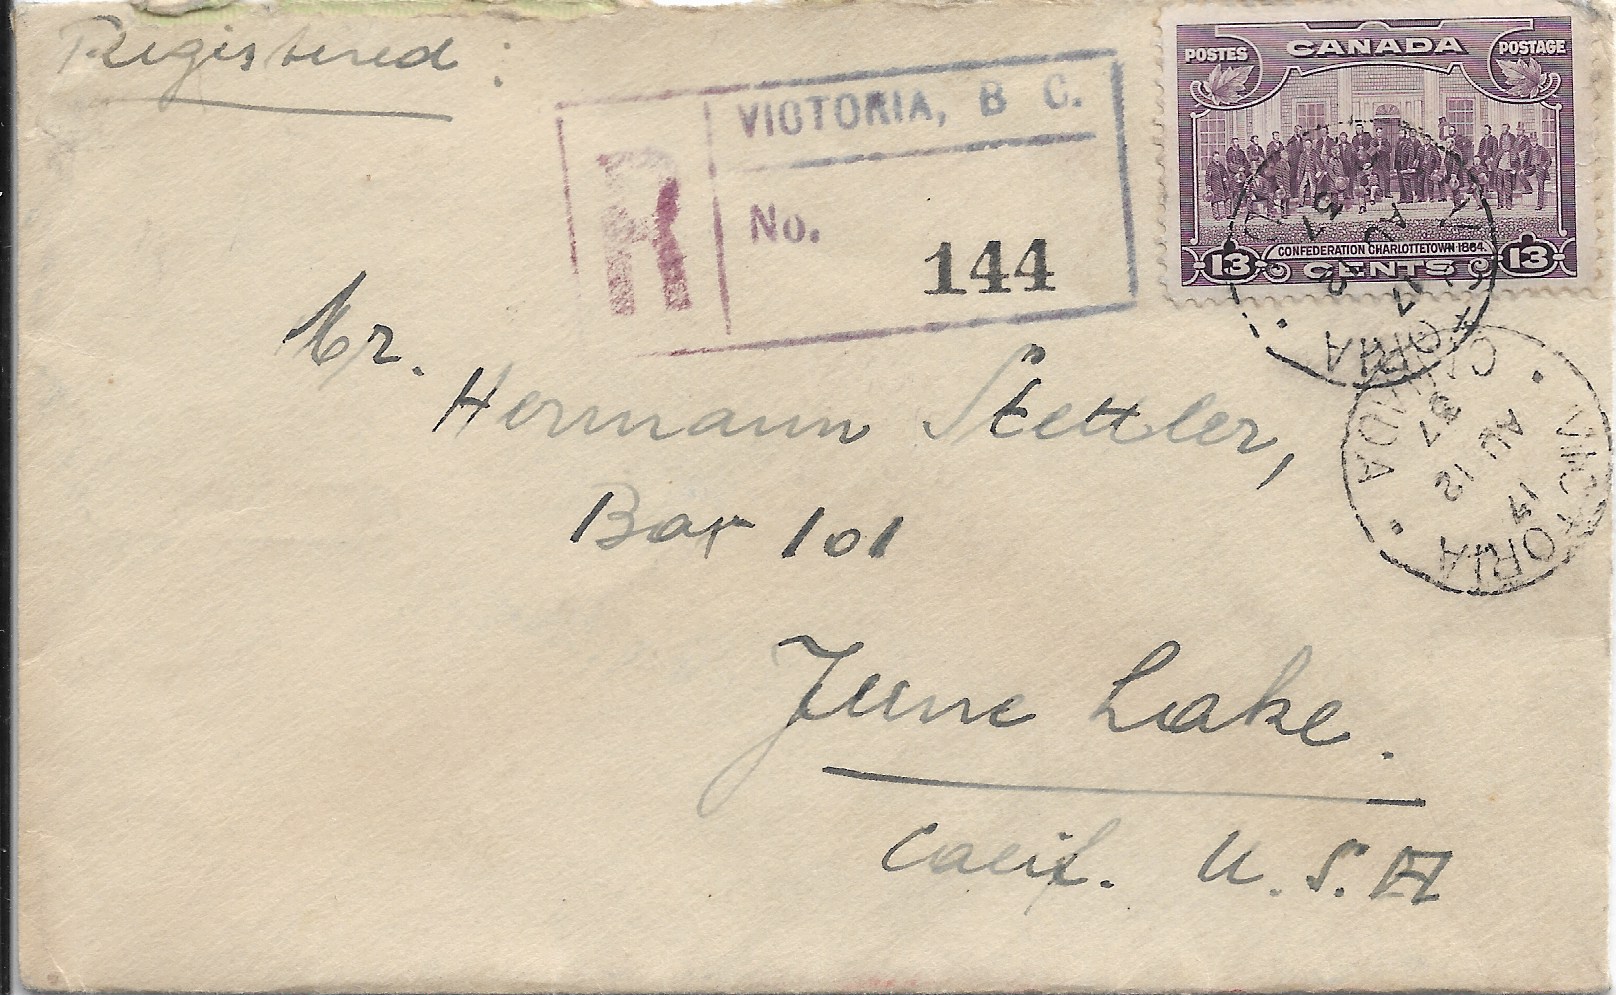 Registered:
VICTORIA, B C.
R
No. 144
POSTES CANADA POSTAGE
CONFEDERATION CHARLOTTETOWN 1864
13 CENTS 13
VICTORIA
17
AU 12
37
CANADA
Mr.
Hermann Stettler,
Box 101
June Lake.
Calif. U.S.A